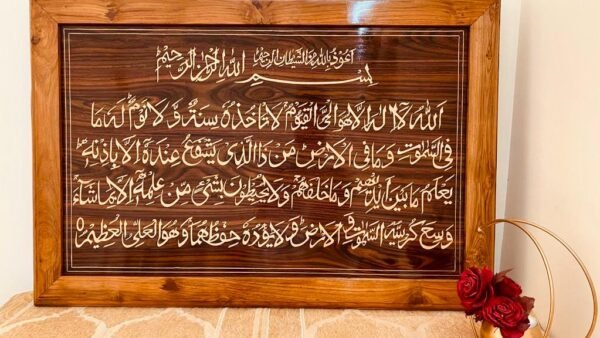 اعوذ بالله من الشیطان الرجیم
بسم الله الرحمن الرحیم
الله لا اله الا هو الحی القیوم لا تاخذه سنة و لا نوم له ما
فی السموت و ما فی الارض من ذا الذی یشفع عنده الا باذنه
یعلم ما بین ایدیهم و ما خلفهم ولا یحیطون بشیء من علمه الا بما شاء
وسع کرسیه السموت و الارض و لا یؤده حفظهما وهو العلی العظیم